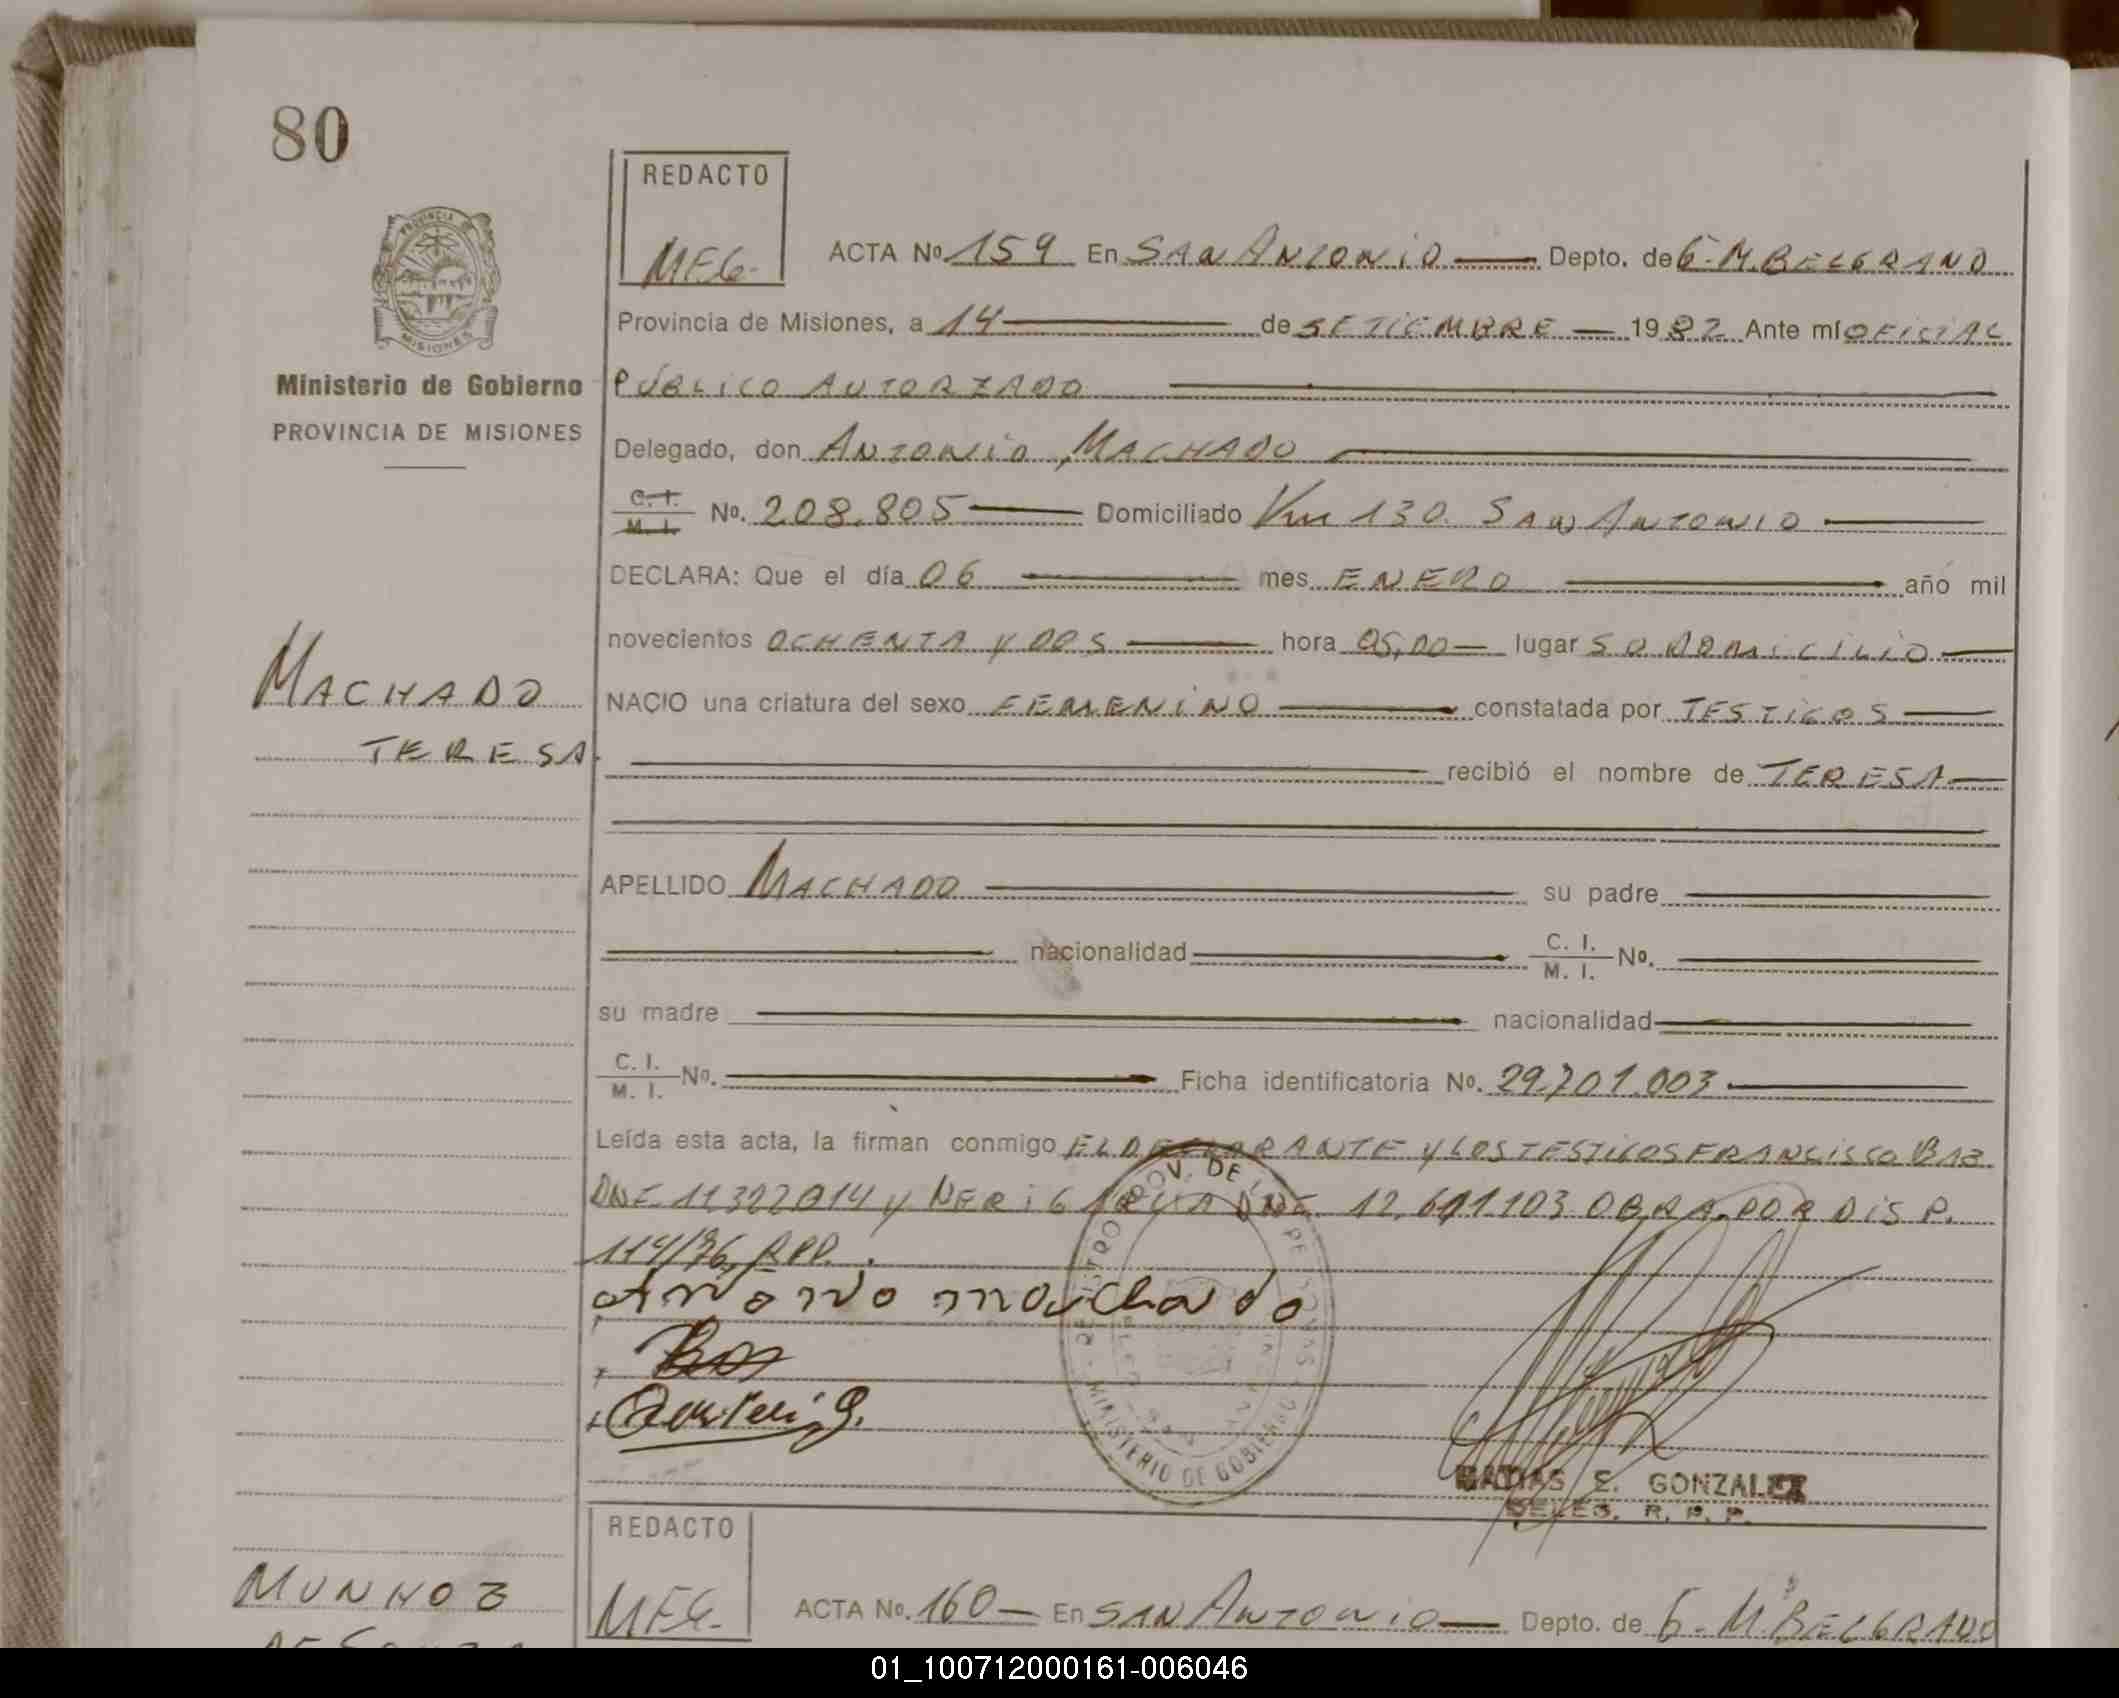 80
REDACTO
MEG.
PROVINCIA DE
MISIONES
Ministerio de Gobierno
PROVINCIA DE MISIONES
ACTA Nº 159 En SAN ANTONIO Depto. de G. M. BELGRANO
Provincia de Misiones, a 14 de SETIEMBRE 1982 Ante mí OFICIAL
PÚBLICO AUTORZADO
Delegado, don ANTONIO, MACHADO
C. I.
M. I. Nº. 208.805 Domiciliado Km 130. SAN ANTONIO
DECLARA: Que el día 06 mes ENERO año mil
novecientos OCHENTA Y DOS hora 05,00 lugar SU DOMICILIO
MACHADO NACIO una criatura del sexo FEMENINO constatada por TESTIGOS
TERESA. recibió el nombre de TERESA
APELLIDO MACHADO su padre
nacionalidad C. I.
M. I. Nº.
su madre nacionalidad
C. I.
M. I. Nº. Ficha identificatoria Nº. 29.701.003
Leída esta acta, la firman conmigo EL DECLARANTE Y LOS TESTIGOS FRANCISCO BAZ
DNI 11322014 y NERI GARCIA DNI. 12.601103 OBRA POR DISP.
114/76, RPP.
Antonio machado
MINISTERIO DE GOBIERNO
MATIAS E. GONZALEZ
DELEG. R. P. P.
REDACTO
MEG.
MUNHOZ
ACTA Nº. 160 En SAN ANTONIO Depto. de G. M. BELGRANO
01_100712000161-006046